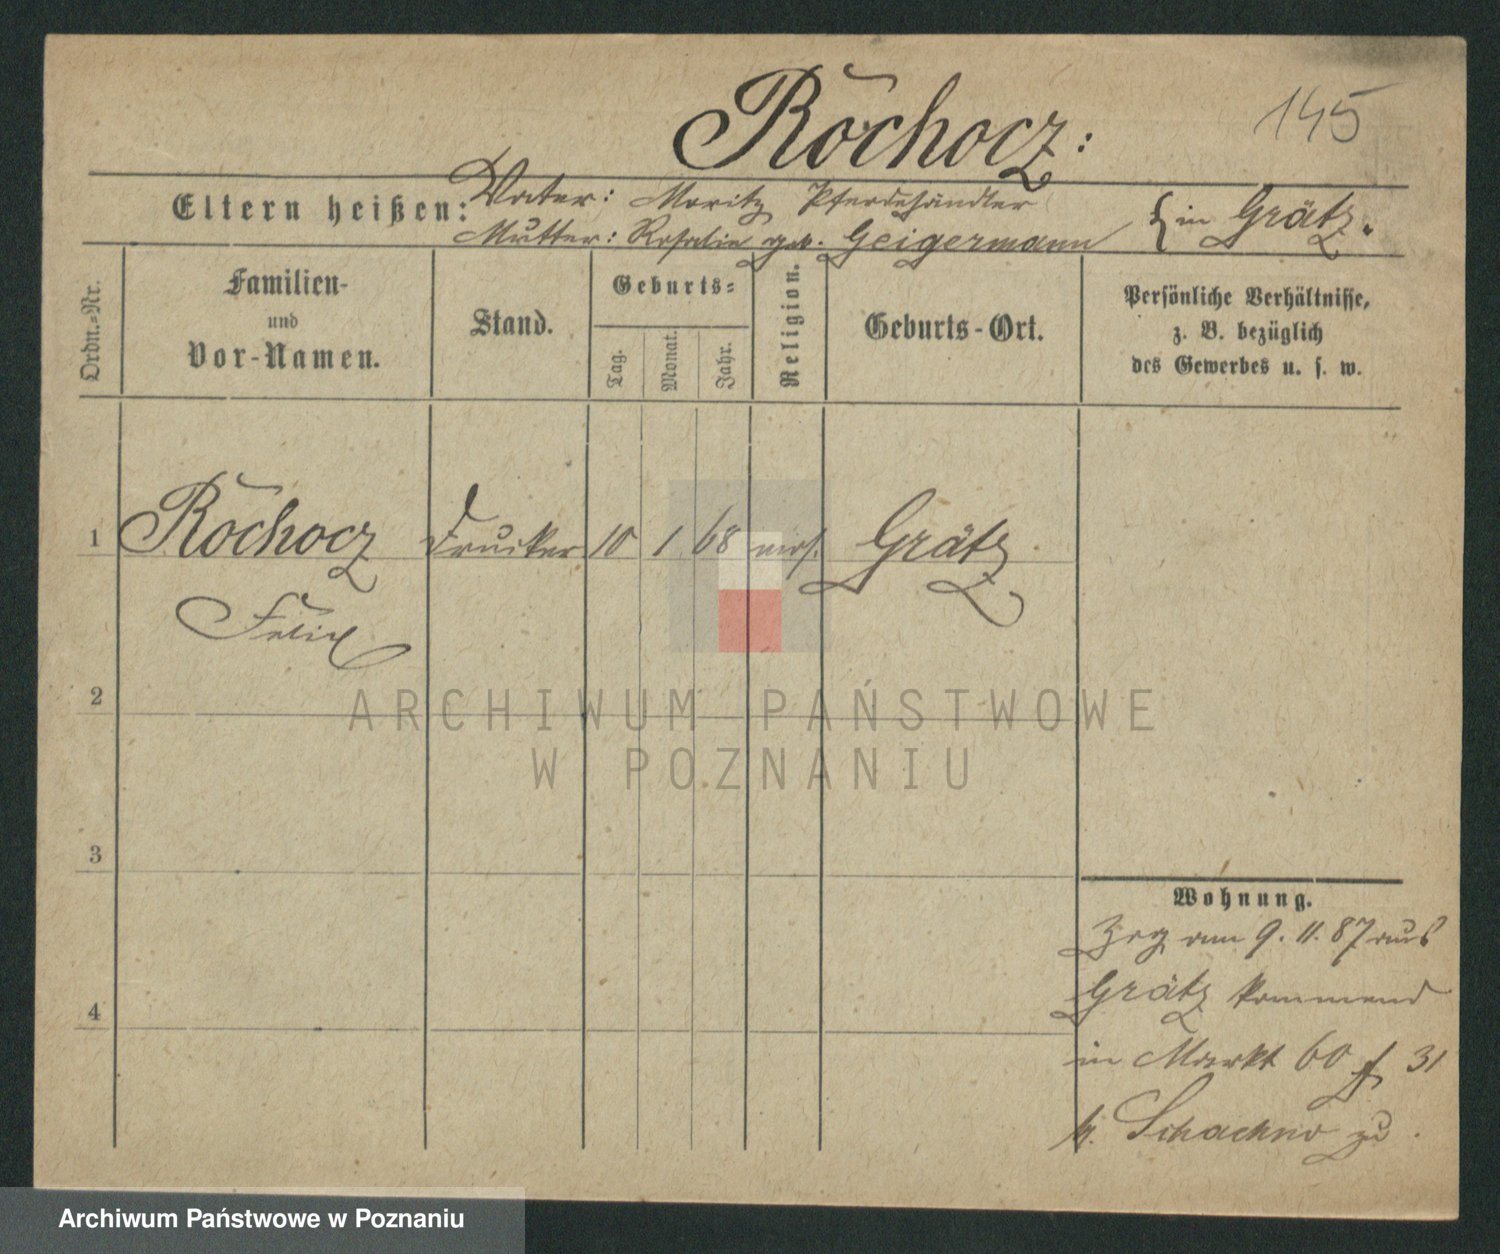 Rochocz:
145
Eltern heißen:
Vater: Moritz Pferdehändler
Mutter: Rosalie geb. Geigermann
in Grätz.
Ordn.-Nr.
Familien-
und
Vor-Namen.
Stand.
Geburts-
Tag.
Monat.
Jahr.
Religion.
Geburts-Ort.
Persönliche Verhältnisse,
z. B. bezüglich
des Gewerbes u. s. w.
1 Rochocz Drucker 10 1 68 mos. Grätz
Felix
2
3
4
Wohnung.
Zog am 9. 11. 87 aus
Grätz kommend
in Markt 60 31
b. Schachno zu
ARCHIWUM PAŃSTWOWE
W POZNANIU
Archiwum Państwowe w Poznaniu